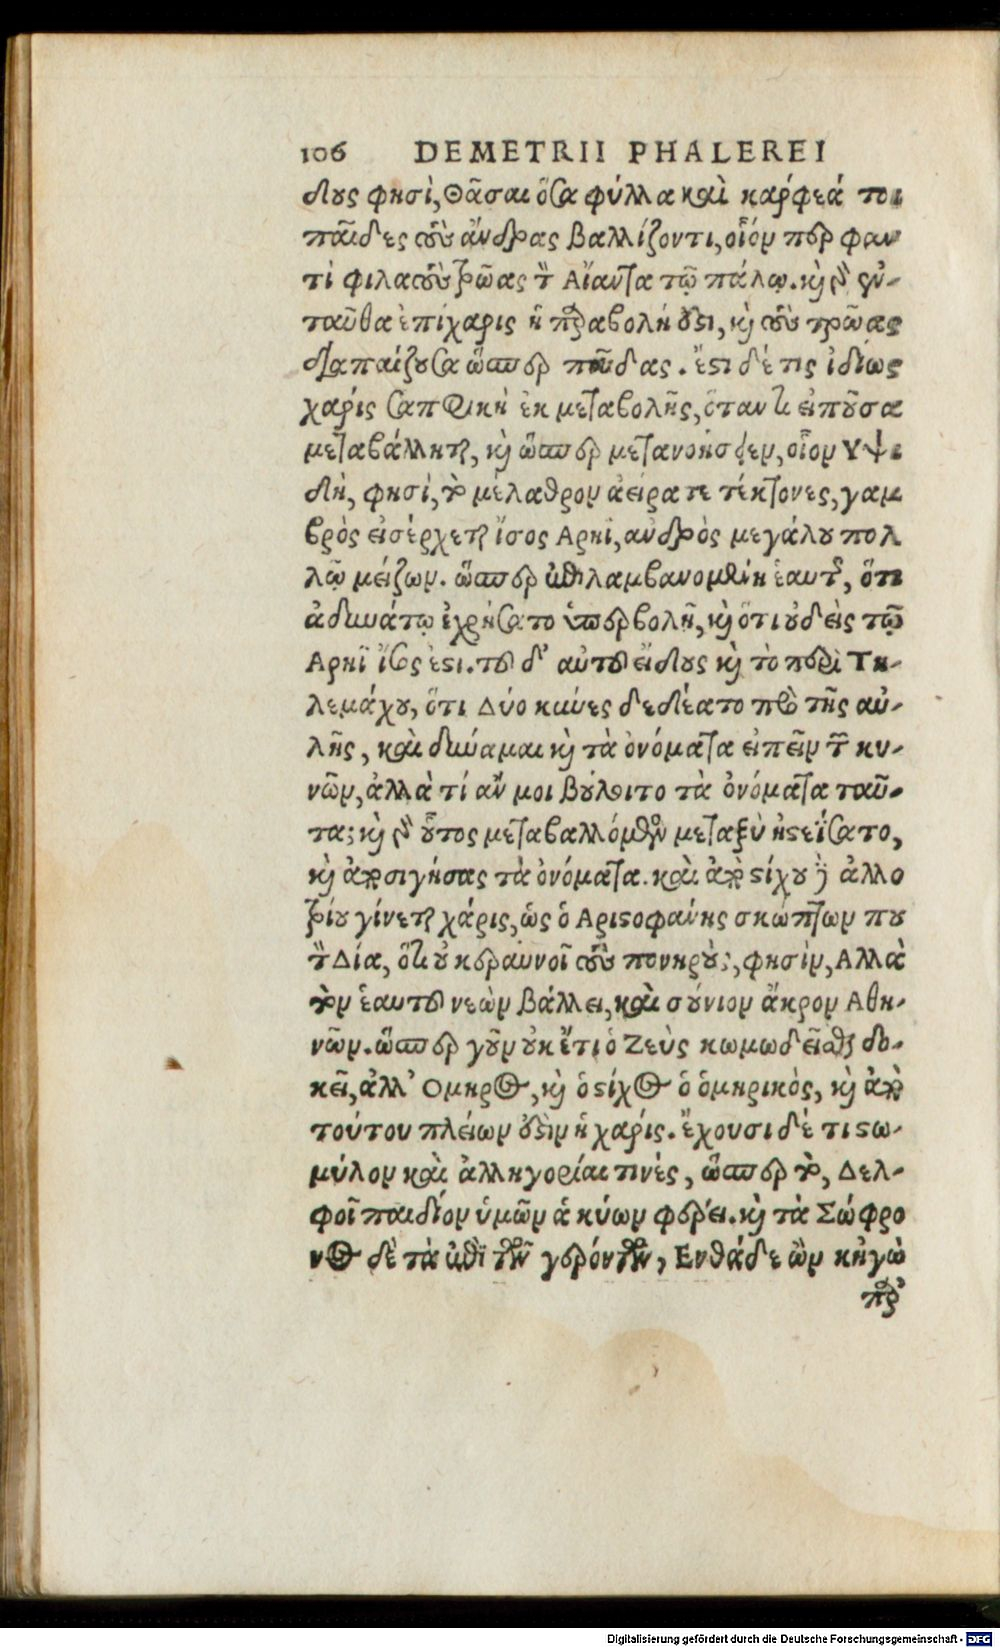 106 DEMETRII PHALEREI
δους φησὶ, Θᾶσαι ὅσα φύλλα καὶ κάρφεά τοι
παῖδες τοὺς ἄνδρας βαλλίζοντι, οἷόν περ φαν
τὶ φίλα τοὺς τρῶας τὸν Αἴαντα τῷ πάλῳ. καὶ γὰρ ἐν-
ταῦθα ἐπίχαρις ἡ παραβολή ἐστι, καὶ τοὺς τρῶας
διαπαίζουσα ὥσπερ παῖδας. ἔστι δέ τις ἰδίως
χάρις σαπφικὴ ἐκ μεταβολῆς, ὅταν τι εἰποῦσα
μεταβάλληται, καὶ ὥσπερ μετανοήσῃ, οἷον Υψι
δὴ, φησὶ, τὸ μέλαθρον ἀείρατε τέκτονες, γαμ
βρὸς εἰσέρχεται ἴσος Αρηϊ, ανδρὸς μεγάλου πολ
λῷ μείζων. ὥσπερ ἐπιλαμβανομένη ἑαυτῆς, ὅτι
ἀδυνάτῳ ἐχρήσατο ὑπερβολῇ, καὶ ὅτι οὐδεὶς τῷ
Αρηϊ ἴσος ἐστι. τοῦ δ' αὐτοῦ εἴδους καὶ τὸ περὶ Τη-
λεμάχου, ὅτι Δύο κύνες δεδέατο πρὸ τῆς αὐ-
λῆς, καὶ δύναμαι καὶ τὰ ὀνόματα εἰπεῖν τῶν κυ-
νῶν, ἀλλὰ τί ἄν μοι βούλοιτο τὰ ὀνόματα ταῦ-
τα; καὶ γὰρ οὗτος μεταβαλλόμενος μεταξὺ ἠστεΐσατο,
καὶ ἀποσιγήσας τὰ ὀνόματα. καὶ ἀπὸ στίχου δὲ ἀλλο
τρίου γίνεται χάρις, ὡς ὁ Αριστοφάνης σκώπτων που
τὸν Δία, ὅτι οὐ κεραυνοῖ τοὺς πονηρούς, φησὶν, Αλλὰ
τὸν ἑαυτοῦ νεὼν βάλλει, καὶ σούνιον ἄκρον Αθη-
νῶν. ὥσπερ γοῦν οὐκ ἔτι ὁ Ζεὺς κωμωδεῖσθαι δο-
κεῖ, ἀλλ' Ομηρος, καὶ ὁ στίχος ὁ ὁμηρικὸς, καὶ ἀπὸ
τούτου πλείων ἐστὶν ἡ χάρις. ἔχουσι δέ τι στω-
μύλον καὶ ἀλληγορίαι τινὲς, ὥσπερ τὸ, Δελ-
φοὶ παιδίον ὑμῶν ἁ κύων φέρει. καὶ τὰ Σώφρο
νος δὲ τὰ ἐπὶ τῶν γερόντων, Ενθάδε ὢν κἠγὼ
παρ'
Digitalisierung gefördert durch die Deutsche Forschungsgemeinschaft - DFG